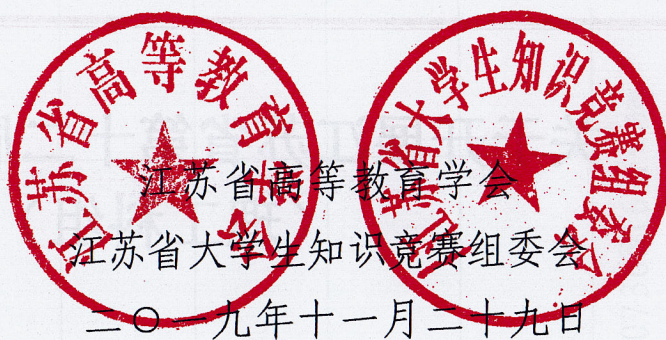 江苏省高等教育学会
江苏省大学生知识竞赛组委会
江苏省高等教育学会
江苏省大学生知识竞赛组委会
二〇一九年十一月二十九日